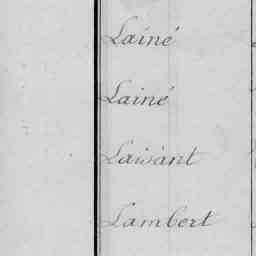 Lainé
Lainé
Laisant
Lambert